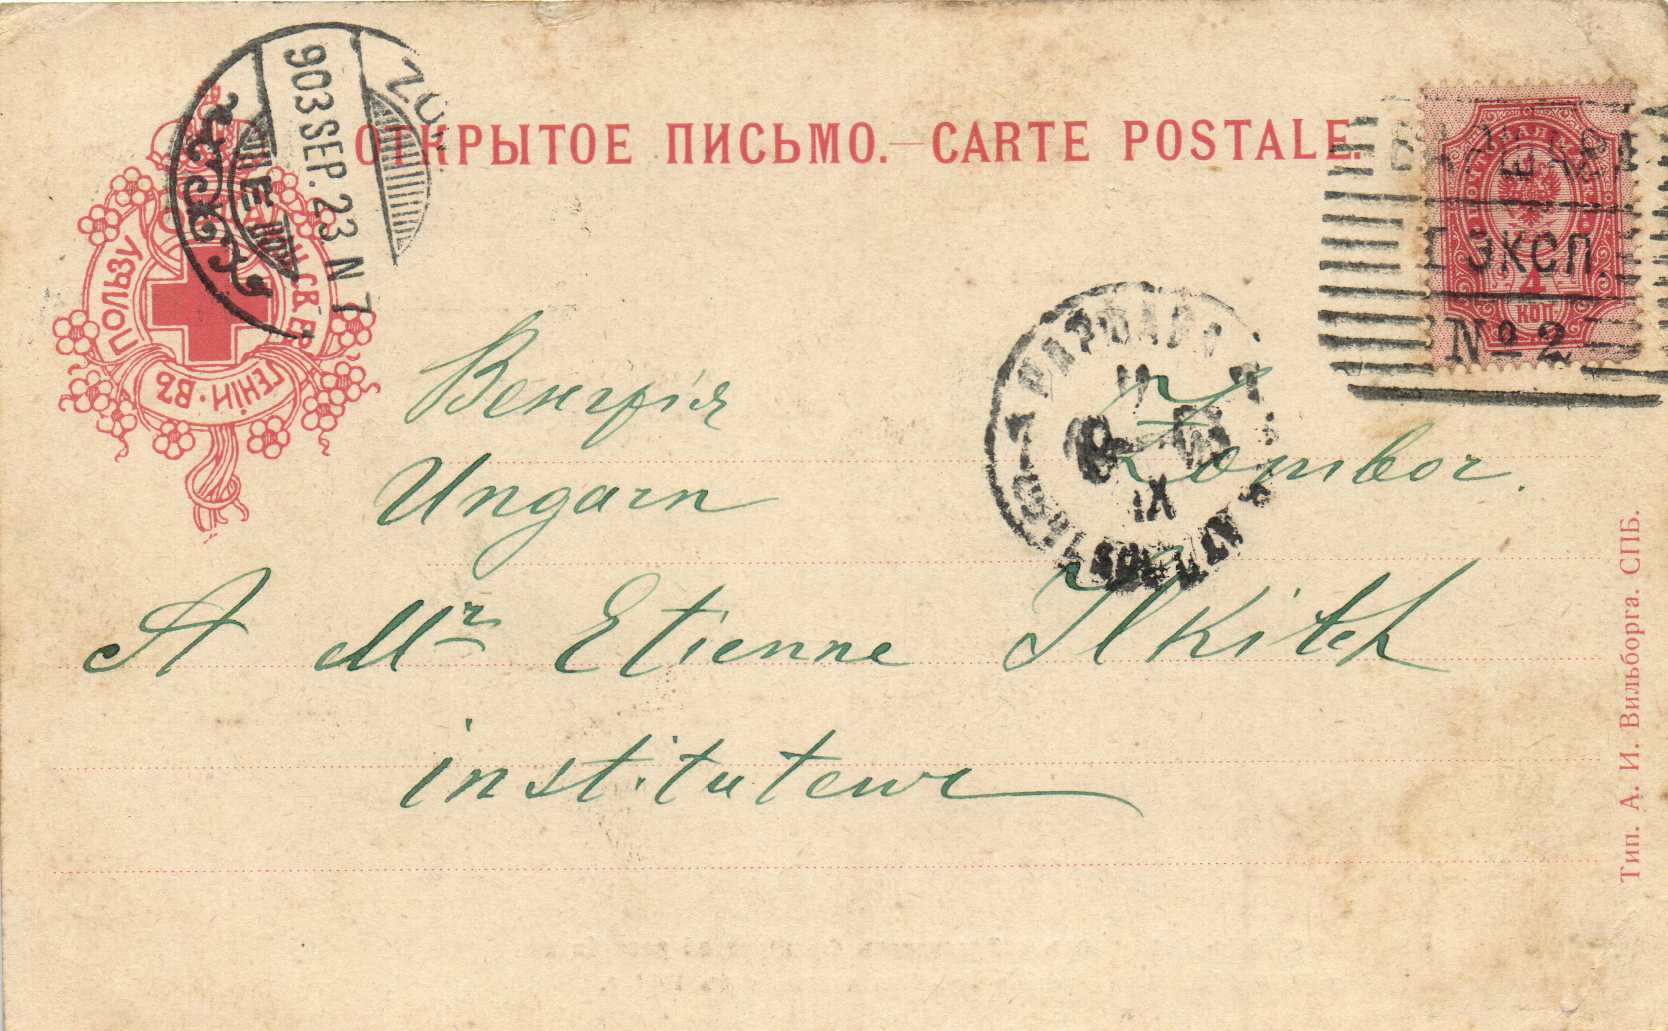 ОТКРЫТОЕ ПИСЬМО.—CARTE POSTALE.
903 SEP. 23 N 7
ПОЛЬЗУ
ГЕНІИ · ВЪ
4
КОП.
ЭКСП.
№ 2
IX
Венгрія
Zombor.
Ungarn
A Mr Etienne Ilkitch
instituteur
Тип. А. И. Вильборга. СПБ.